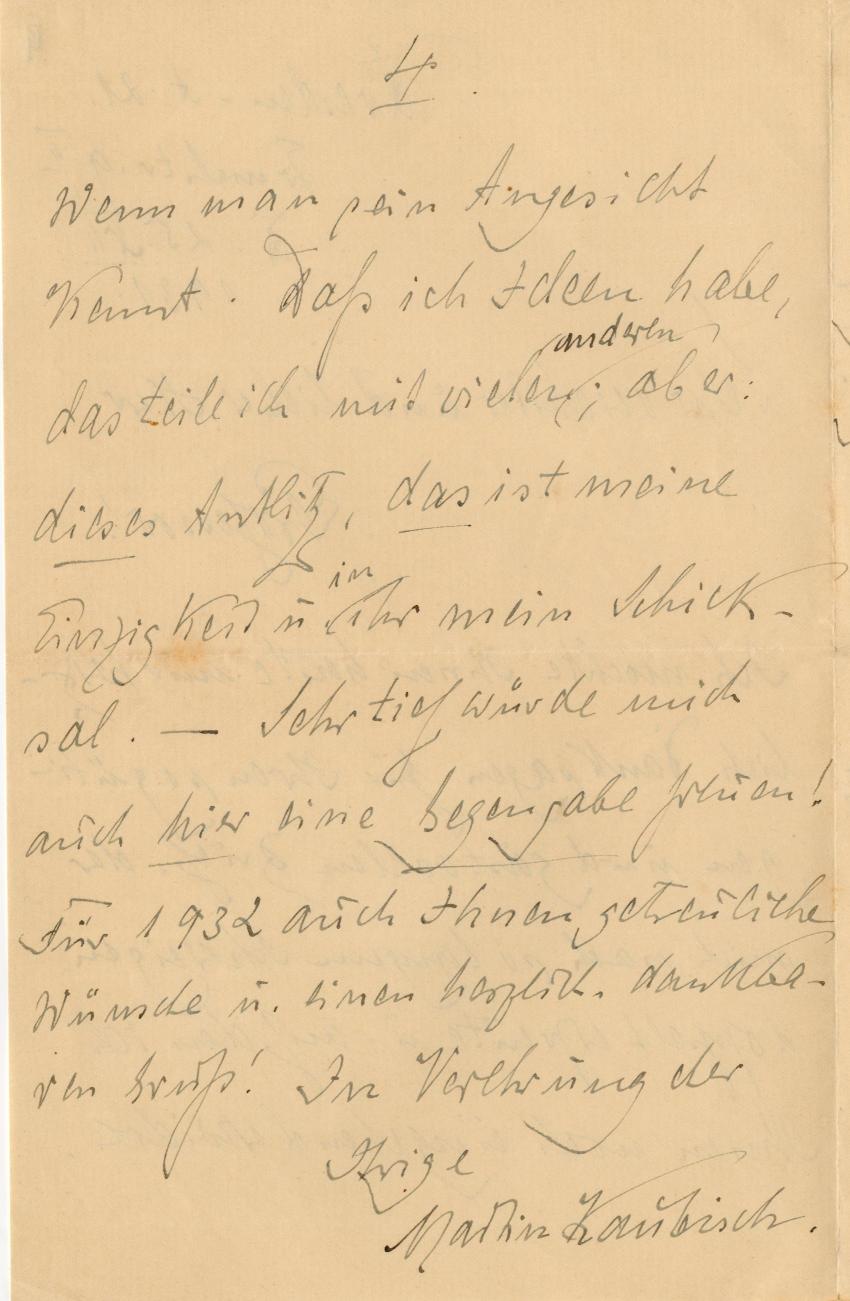 4.
Wenn man sein Angesicht
kennt. Daß ich Ideen habe,
anderen
das teile ich mit vielen; aber:
dieses Antlitz, das ist meine
in
Einzigkeit u ihr mein Schick-
sal. — Sehr tief würde mich
auch hier eine Gegengabe freuen!
Für 1932 auch Ihnen getreuliche
Wünsche u. einen herzlich. dankba-
ren Gruß! In Verehrung der
Ihrige
Martin Kaubisch.